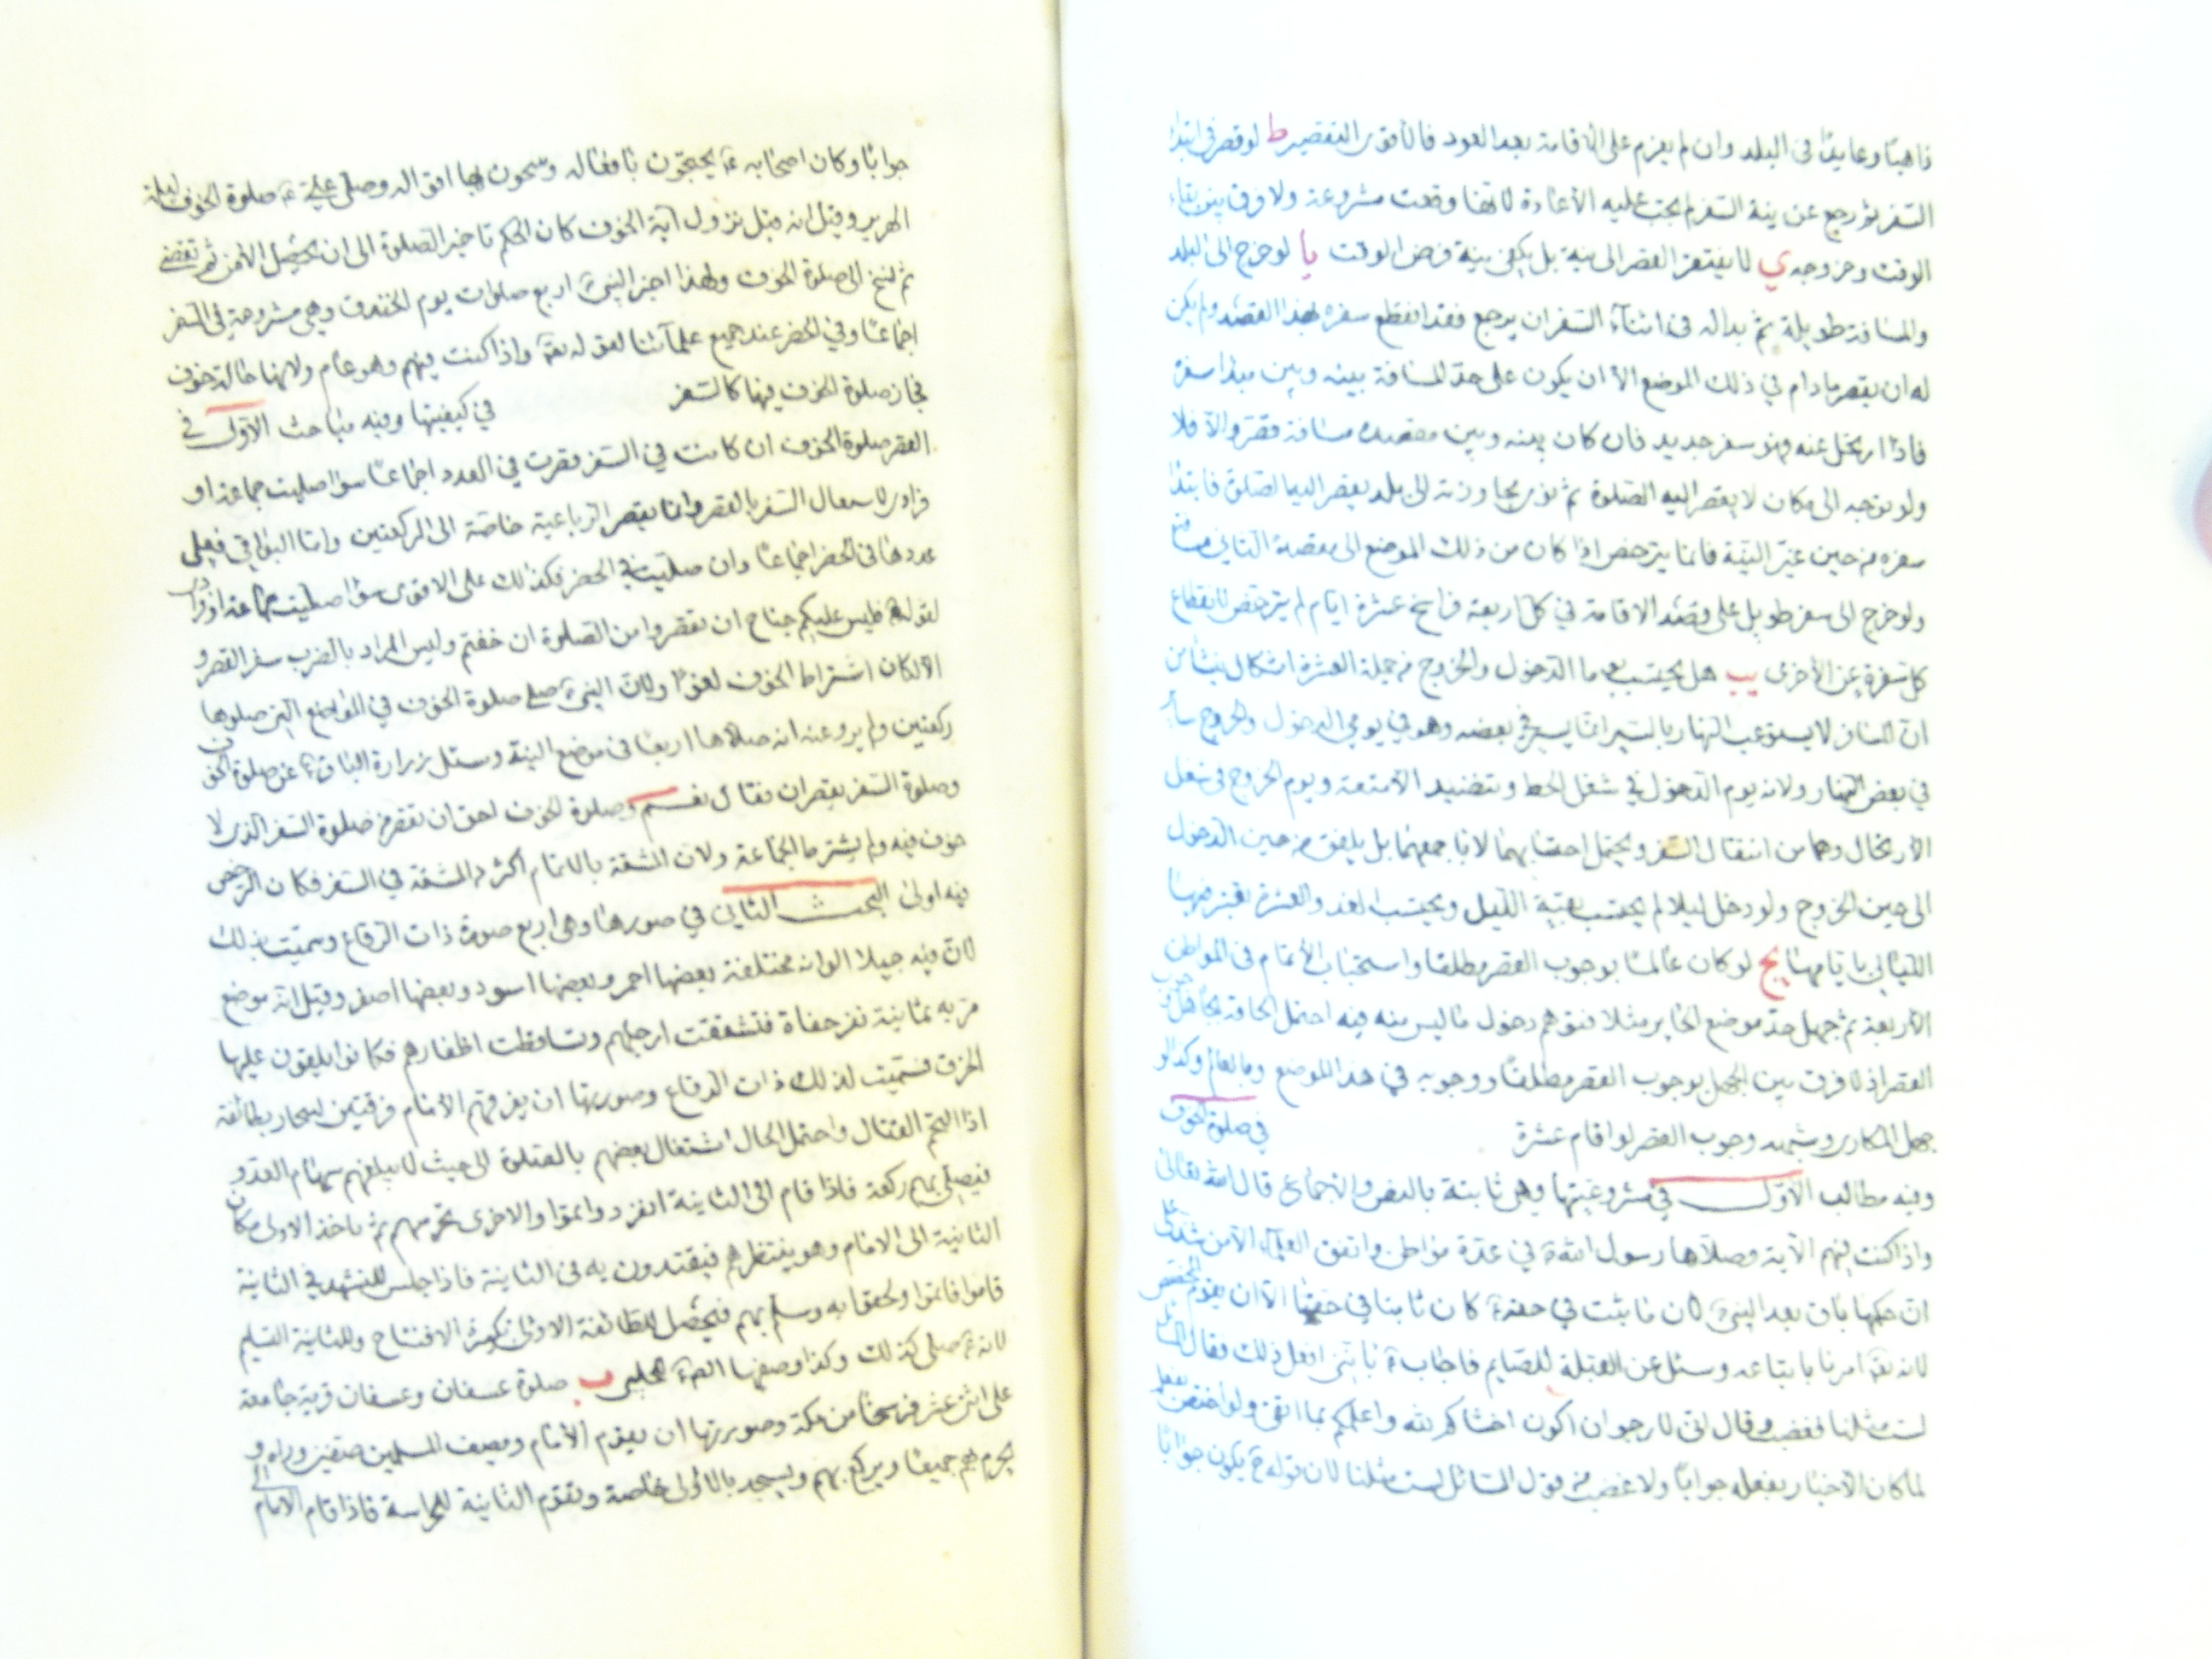 ذاهبا وعايدا في البلد وان لم يعزم على الاقامة بعد العود فالاقوى التقصير ط لو قصر في ابتداء
السفر ثم رجع عن نية السفر لم يجب عليه الاعادة لانها وقعت مشروعة ولا فرق بين بقاء
الوقت وخروجه ي لا يفتقر القصر الى نية بل يكفي نية فرض الوقت يا لو خرج الى البلد
والمسافة طويلة ثم بدا له في اثناء السفر ان يرجع فقد انقطع سفره بهذا القصد ولم يكن
له ان يقصر ما دام في ذلك الموضع الا ان يكون على حد المسافة بينه وبين مبدا سفره
فاذا ارتحل عنه فهو سفر جديد فان كان بينه وبين مقصده مسافة قصر والا فلا
ولو توجه الى مكان لا يقصر اليه الصلوة ثم نوى مجاوزته الى بلد يقصر اليها الصلوة فابتداء
سفره من حين غير النية فانما يترخص اذا كان من ذلك الموضع الى مقصده الثاني مسافة
ولو خرج الى سفر طويل على قصد الاقامة في كل اربعة فراسخ عشرة ايام لم يترخص لانقطاع
كل سفرة عن الاخرى يب هل يحتسب يوما الدخول والخروج من جملة العشرة اشكال ينشا من
ان المسافر لا يستوعب النهار بالسير انما يسير في بعضه وهو في يومي الدخول والخروج ساير
في بعض النهار ولانه يوم الدخول في شغل الحط وتنضيد الامتعة ويوم الخروج في شغل
الارتحال وهما من اشغال السفر ويحتمل احتسابهما لانا بل يلفق من حين الدخول
الى حين الخروج ولو دخل ليلا لم يحتسب بقية الليل ويحتسب الغد والعشرة يعتبر فيها
الليالي بايامها يج لو كان عالما بوجوب القصر مطلقا واستحباب الاتمام في المواطن
الاربعة ثم جهل حد موضع الحاير مثلا فتوهم دخول ما ليس منه فيه احتمل الحاقه بجاهل وجوب
القصر اذ لا فرق بين الجهل بوجوب القصر مطلقا ووجوبه في هذا الموضع وبالعالم وكذا لو
جهل المكاري وشبهه وجوب القصر لو اقام عشرة في صلوة الخوف
وفيه مطالب الاول في مشروعيتها وهي ثابتة بالنص والاجماع قال الله تعالى
واذا كنت فيهم الاية وصلاها رسول الله ص في عدة مواطن واتفق العلماء الا من شذ على
ان حكمها باق بعد النبي ص لان ما يثبت في حقه كان ثابتا في حقنا الا ان يقوم المخصص
لانه تع امرنا باتباعه وسئل عن القبلة للصايم فاجاب بانني افعل ذلك فقال السائل
لست مثلنا فغضب وقال اني لارجو ان اكون اخشاكم لله واعلمكم بما اتقي ولو اختص بفعله
لما كان الاخبار بفعله جوابا ولا غضب من قول السائل لست مثلنا لان قوله ح يكون جوابا
جوابا وكان اصحابه يحتجون بافعاله اقواله وصلى علي ع صلوة الخوف ليلة
الهرير وقيل انه قبل نزول اية الخوف كان الحكم تاخير الصلوة الى ان يحصل الامن ثم تقضى
ثم نسخ الى صلوة الخوف ولهذا اخر النبي ص اربع صلوات يوم الخندق وهي مشروعة في السفر
اجماعا وفي الحضر عند جميع علمائنا لقوله تع واذا كنت فيهم وهو عام ولانها حالة خوف
فجاز صلوة الخوف فيها كالسفر في كيفيتها وفيه مباحث الاول في
القصر صلوة الخوف ان كانت في السفر قصرت في العدد اجماعا سواء صليت جماعة او
فرادى السفر بالقصر وانما يقصر الرباعية خاصة الى الركعتين واما البواقي فيصلى
عددها في الحضر اجماعا وان صليت في الحضر فكذلك على الاقوى سواء صليت جماعة او فرادى
لقوله فليس عليكم جناح ان تقصروا من الصلوة ان خفتم وليس المراد بالضرب سفر القصر و
الا لكان اشتراط الخوف لغوا ولان النبي ص صلى صلوة الخوف في المواضع التي صلاها
ركعتين ولم يرو عنه انه صلاها اربعا في موضع البتة وسئل زرارة الباقر ع عن صلوة الخوف
وصلوة السفر يقصران فقال نعم وصلوة الخوف احق ان تقصر من صلوة السفر الذي لا
خوف فيه ولم يشترط الجماعة ولان المشقة بالاتمام اكثر من المشقة في السفر فكان الترخص
فيه اولى البحث الثاني في صورها وهي اربع صورة ذات الرقاع وسميت بذلك
لان فيه جبلا الوانه مختلفة بعضها احمر وبعضها اسود وبعضها اصفر وقيل انه موضع
مر به ثمانية نفر حفاة فتشققت ارجلهم وتساقطت اظفارهم فكانوا يلفون عليها
الخرق فسميت لذلك ذات الرقاع وصورتها ان يفرقهم الامام فرقتين ليحارب بطائفة
اذا التحم القتال واحتمل الحال اشتغال بعضهم بالصلوة الى حيث لا يبلغهم سهام العدو
فيصلي بهم ركعة فاذا قام الى الثانية انفردوا واتموا والاخرى تحرسهم ثم ياخذ الاولى مكان
الثانية الى الامام وهو ينتظرهم فيقتدون به في الثانية فاذا جلس للتشهد في الثانية
قاموا فاتموا ولحقوا به وسلم بهم فيحصل للطائفة الاولى تكبيرة الافتتاح وللثانية التسليم
لانه ع صلى كذلك وكذا وصفها ب صلوة عسفان وعسفان قرية جامعة
على اثني عشر فرسخا من مكة وصورتها ان يقوم الامام ويصف المسلمين صفين وراءه و
يحرم بهم جميعا ويركع بهم ويسجد بالاولى خاصة وتقوم الثانية للحراسة فاذا قام الامام الى